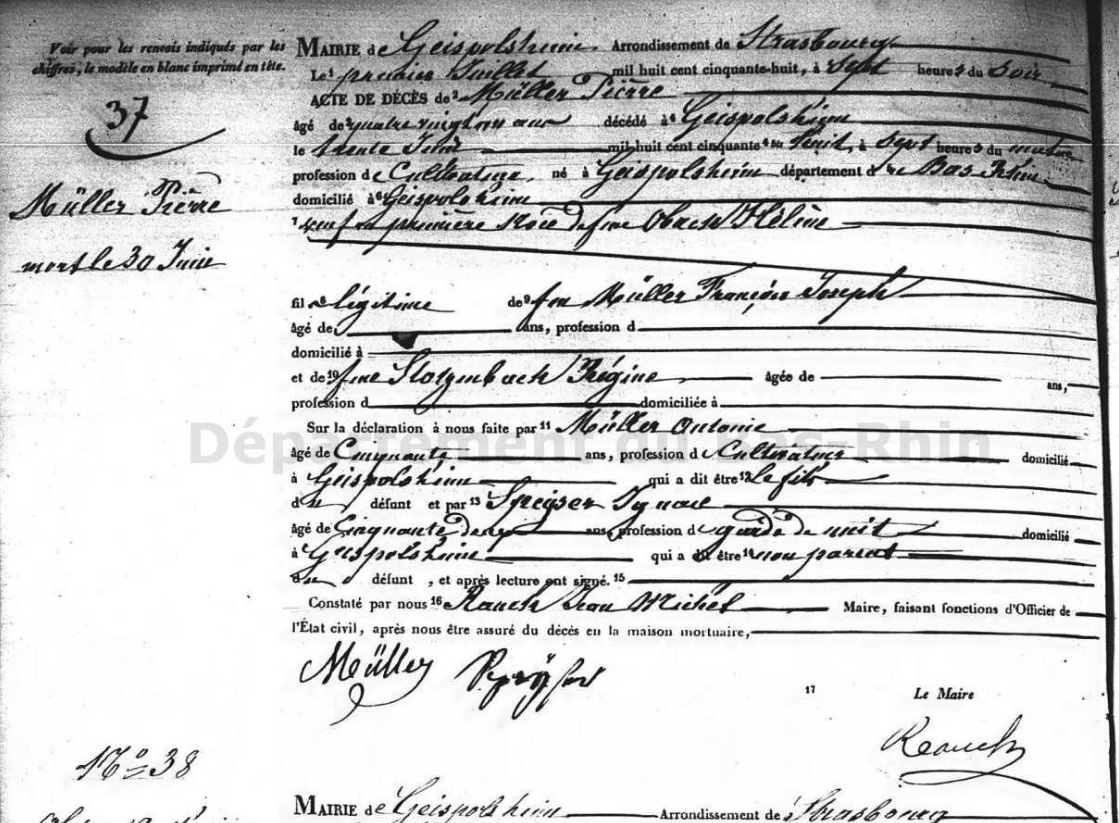 Voir pour les renvois indiqués par les
chiffres, le modèle en blanc imprimé en tête.
37
Müller Pièrre
mort le 30 Juin
MAIRIE de Geispolsheim Arrondissement de Strasbourg
Le 1 premier Juillet mil huit cent cinquante-huit, à Sept heures du Soir
ACTE DE DÉCÈS de 2 Müller Pièrre
âgé de 3 quatre vingt ans décédé à 4 Geispolsheim
le trente Juin mil huit cent cinquante huit, à Sept heures du matin
profession de Cultivateur, né à Geispolsheim département du Bas Rhin
domicilié à 6 Geispolsheim
7 veuf en première de feue Hélène
fils 8 légitime de 9 feu Müller François Joseph
âgé de ans, profession d
domicilié à
et de 10 feue Régine âgée de ans,
profession d domiciliée à
Sur la déclaration à nous faite par 11 Müller Antoine
âgé de Cinquante ans, profession de Cultivateur domicilié
à Geispolsheim qui a dit être 12 le fils
du défunt et par 13 Speÿser Ignace
âgé de Cinquante ans, profession de garde de nuit domicilié
à Geispolsheim qui a dit être 14 non parent
du défunt , et après lecture ont signé. 15
Constaté par nous 16 Rauch Jean Michel Maire, faisant fonctions d'Officier de
l'État civil, après nous être assuré du décès en la maison mortuaire,
Müller Speÿser
17 Le Maire
Rauch
Nº 38
MAIRIE de Geispolsheim Arrondissement de Strasbourg
Département du Bas-Rhin